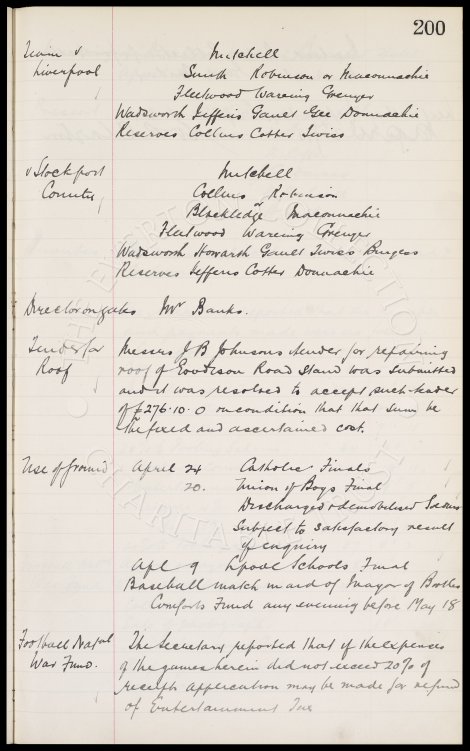 200
Team v Mitchell
Liverpool Smith Robinson or Maconnachie
Fleetwood Wareing Grenyer
Wadsworth Jefferis Gault Gee Donnachie
Reserves Collins Cotter Twiss
v Stockport Mitchell
County Collins Robinson
or
Blackledge Maconnachie
Fleetwood Wareing Grenyer
Wadsworth Howarth Gault Twiss Burgess
Reserves Jefferis Cotter Donnachie
Director on gates Mr Banks.
Tender for Messrs J B Johnsons tender for repairing
Roof roof of Goodison Road Stand was submitted
and it was resolved to accept such tender
of £276.10.0 on condition that that sum be
the fixed and ascertained cost.
Use of ground April 24 Catholic Finals
20. Union of Boys Final
Discharged & demobilised
Subject to satisfactory result
of enquiry
Apl 9 Lpool Schools Final
Baseball match in aid of Mayor of Bootles
Comforts Fund any evening before May 18
Football Natnal The Secretary reported that if the expenses
War Fund. of the games herein did not exceed 20% of
receipts application may be made for refund
of Entertainment Tax